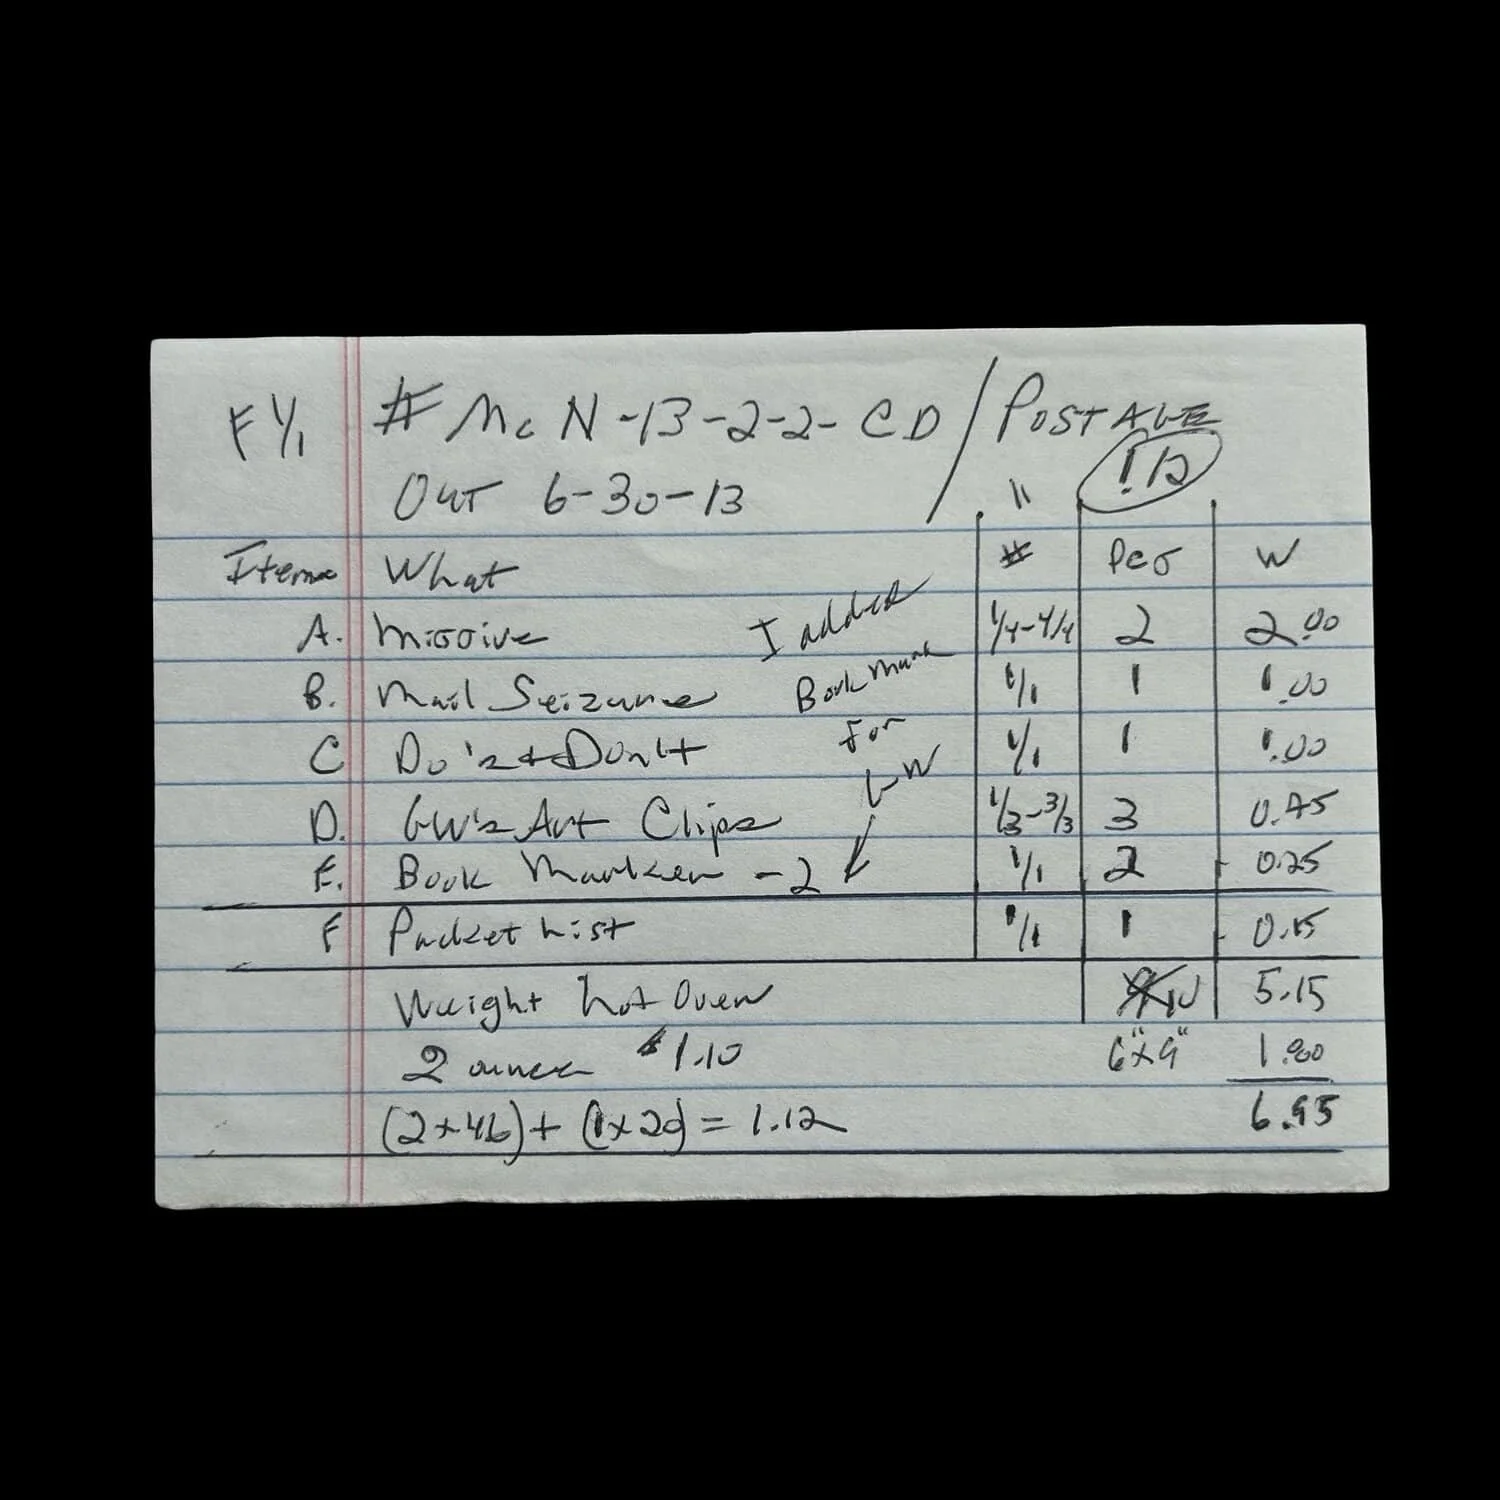 FYI # McN-13-2-2-CD / POSTAGE
OUT 6-30-13 " 1.12
Items What # Pcs W
A. Missive 1/4-4/4 2 2.00
B. Mail Seizure 1/1 1 1.00
C Do's + Don't 1/1 1 1.00
D. GW's Art Clips 1/3-3/3 3 0.75
E. Book Marker - 2 1/1 2 0.25
I added
Book Mark
For
GW
F Packet List 1/1 1 0.15
Weight Not Over 5.15
2 ounce $1.10 6"x9" 1.80
(2x46) + (1x20) = 1.12 6.95